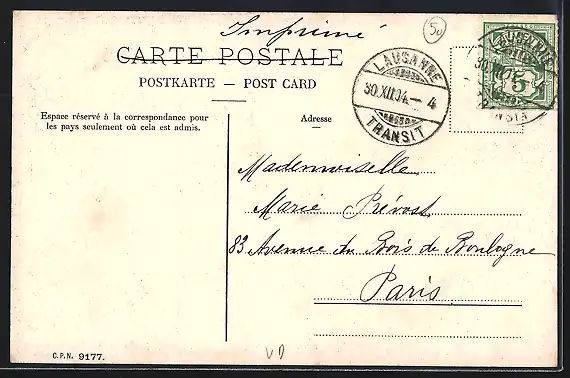 Imprimé
50
CARTE POSTALE
POSTKARTE – POST CARD
LAUSANNE
30.XII.04.– 4
TRANSIT
LAUSANNE
30.XII.04
5
Espace réservé à la correspondance pour
les pays seulement où cela est admis.
Adresse
Mademoiselle
Marie Prévost
83 Avenue du Bois de Boulogne
Paris
C.P.N. 9177.
VD